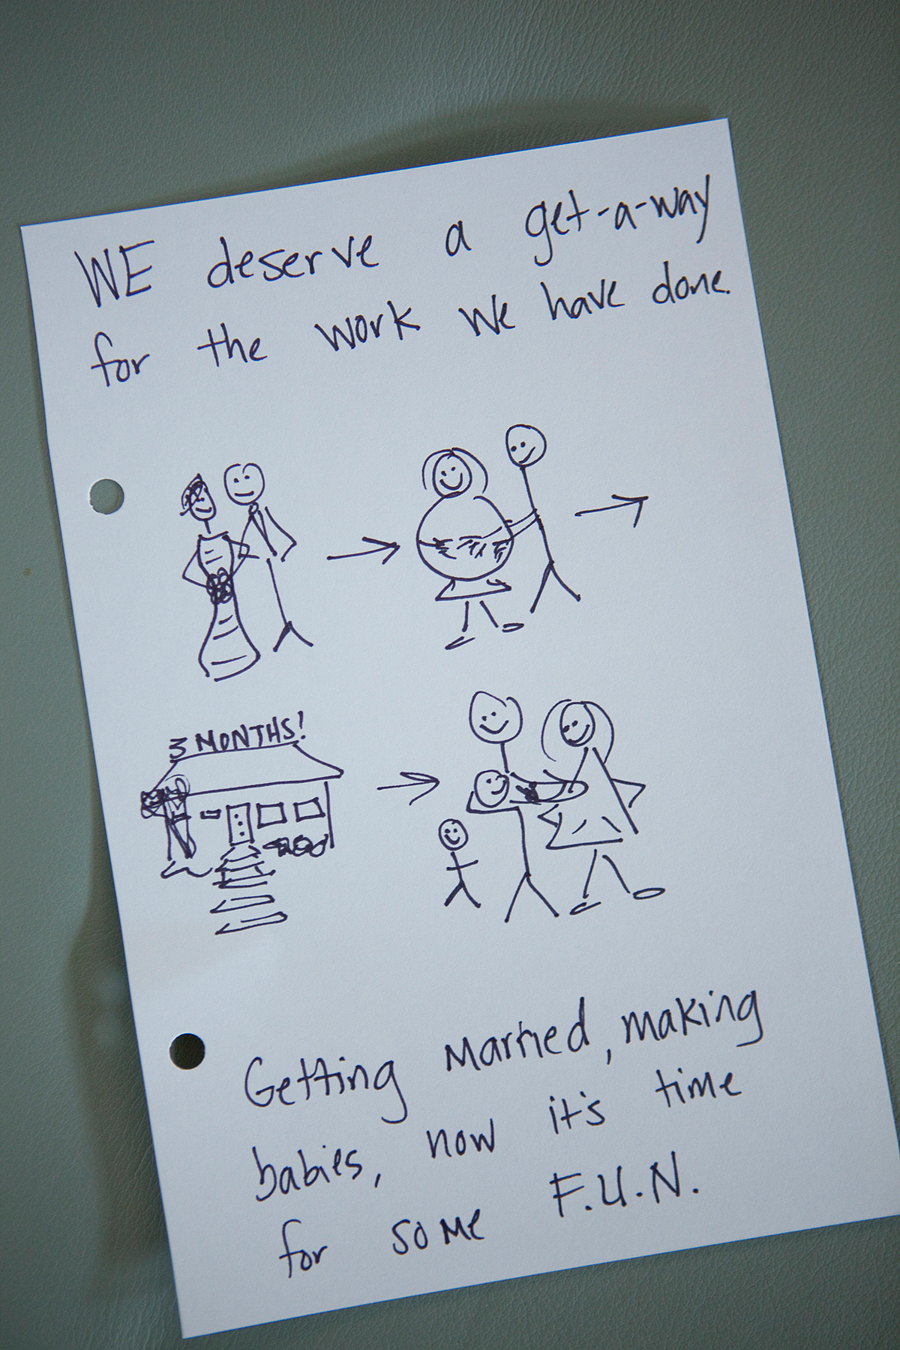 WE deserve a get-a-way
for the work we have done.
3 MONTHS!
Getting Married, making
babies, now it's time
for some F.U.N.